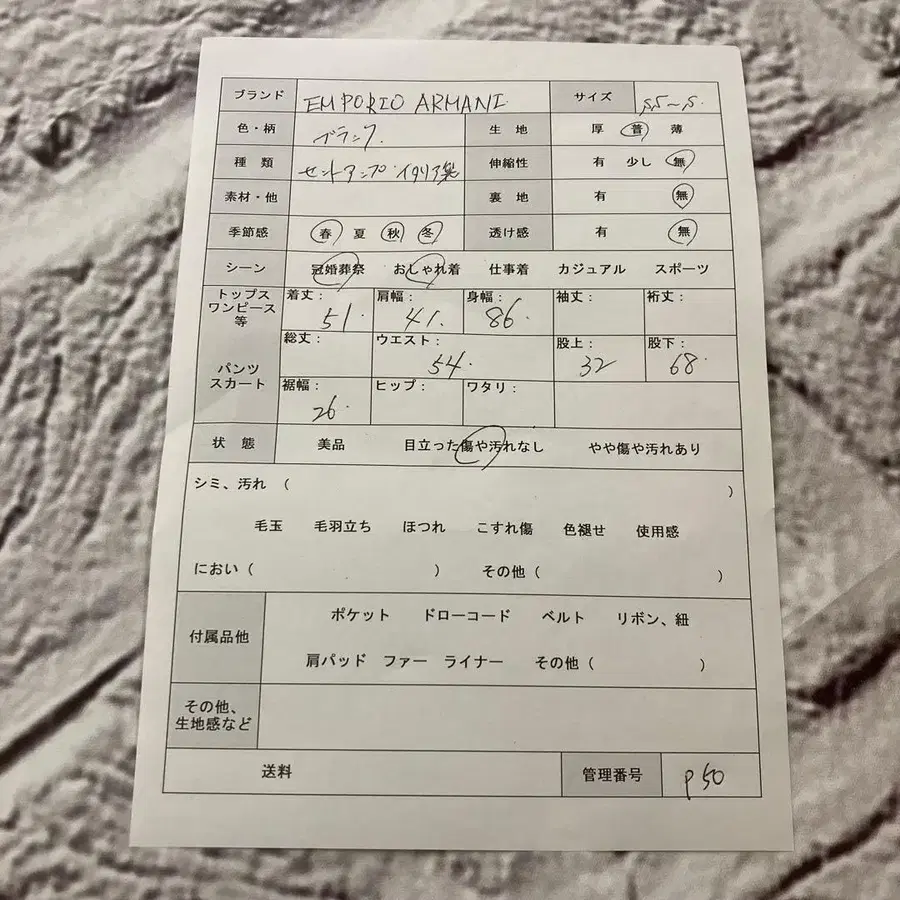 ブランド EMPORIO ARMANI サイズ SS~S.
色・柄 ブラック. 生地 厚 普 薄
種類 セットアップ・イタリア製 伸縮性 有 少し 無
素材・他 裏地 有 無
季節感 春 夏 秋 冬 透け感 有 無
シーン 冠婚葬祭 おしゃれ着 仕事着 カジュアル スポーツ
トップス
ワンピース
等
着丈: 51. 肩幅: 41. 身幅: 86. 袖丈: 裄丈:
パンツ
スカート
総丈: ウエスト: 54. 股上: 32 股下: 68.
裾幅: 26. ヒップ: ワタリ:
状態 美品 目立った傷や汚れなし やや傷や汚れあり
シミ、汚れ ( )
毛玉 毛羽立ち ほつれ こすれ傷 色褪せ 使用感
におい ( ) その他 ( )
付属品他 ポケット ドローコード ベルト リボン、紐
肩パッド ファー ライナー その他 ( )
その他、
生地感など
送料 管理番号 P50